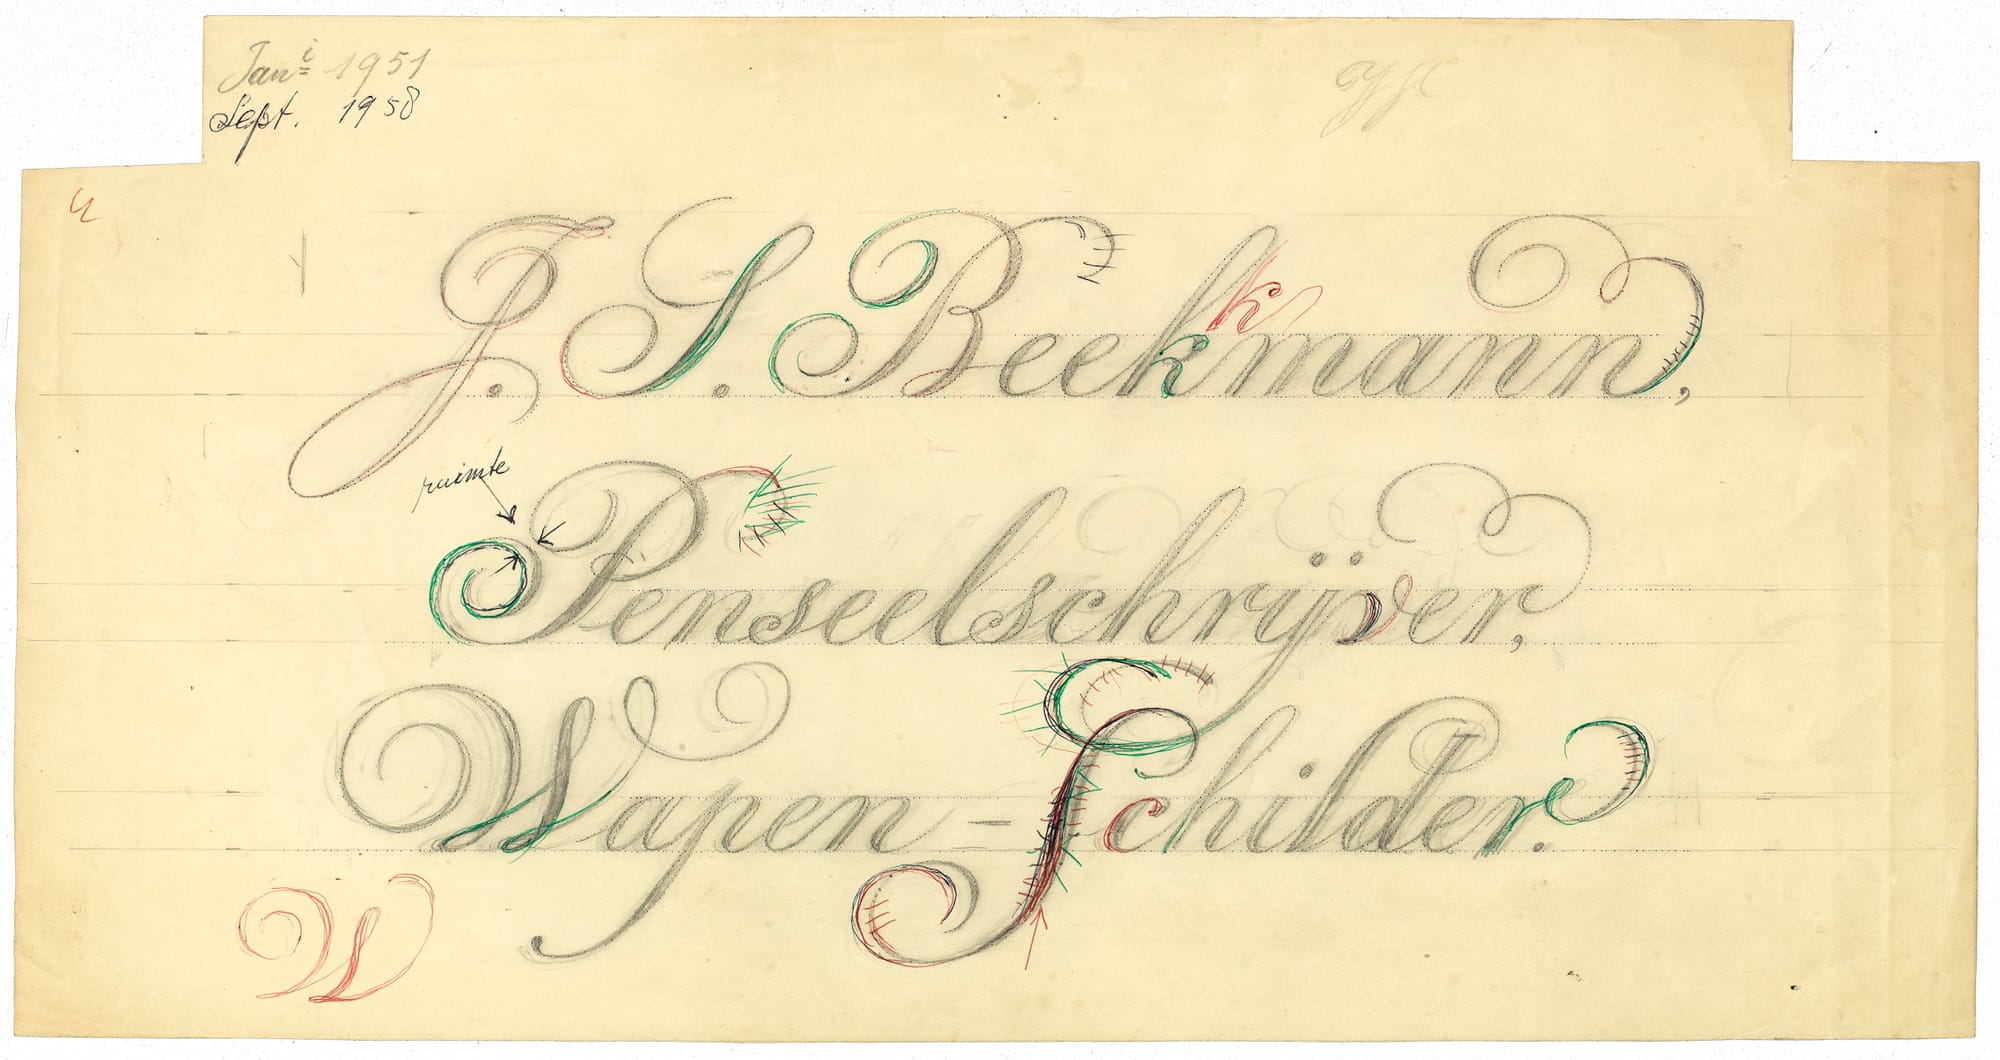 Janⁱ 1951
Sept. 1958
J. S. Beekmann,
k
ruimte
Penseelschrijver,
Wapen-Schilder.
W